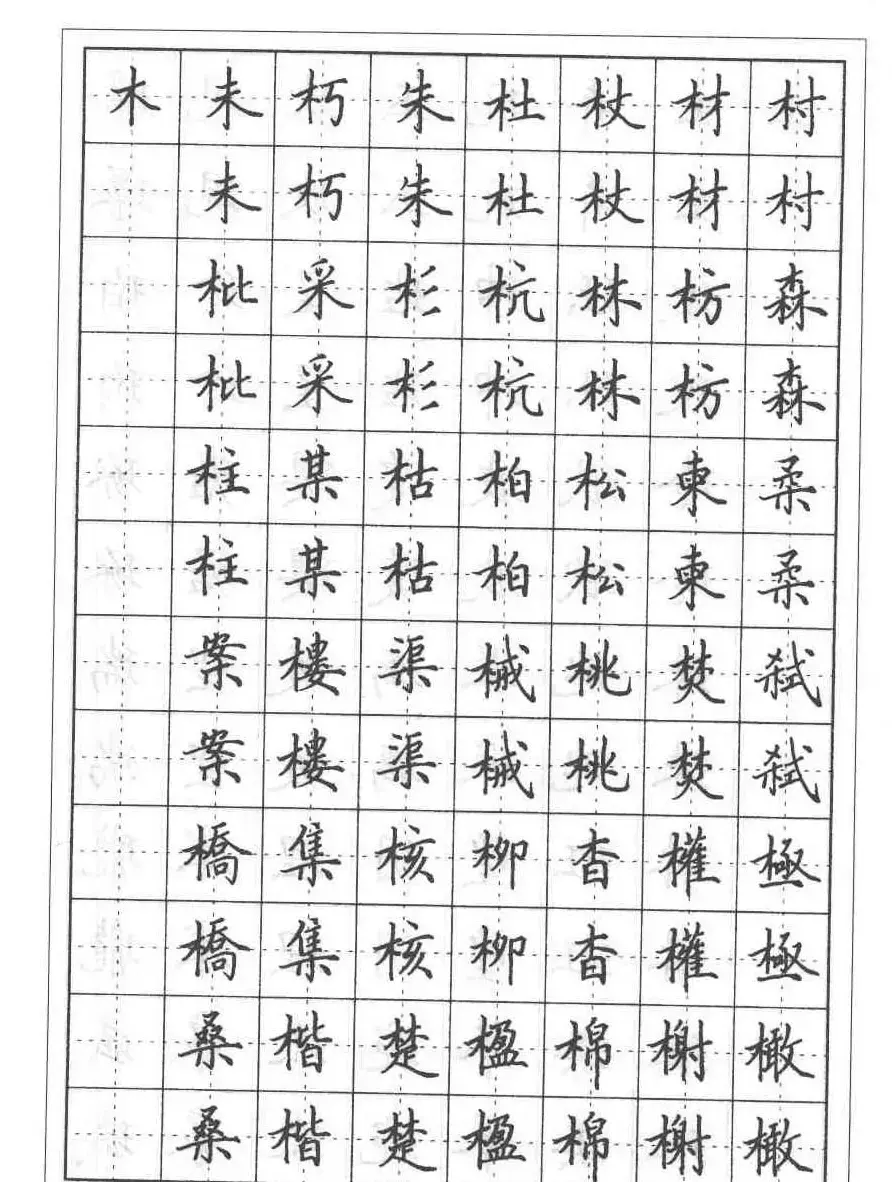 木 未 朽 朱 杜 杖 材 村
未 朽 朱 杜 杖 材 村
枇 采 杉 杭 林 枋 森
枇 采 杉 杭 林 枋 森
柱 某 枯 柏 松 柬 柔
柱 某 枯 柏 松 柬 柔
案 樓 渠 械 桃 焚 弑
案 樓 渠 械 桃 焚 弑
橋 集 核 柳 杳 權 極
橋 集 核 柳 杳 權 極
桑 楷 楚 楹 棉 榭 橄
桑 楷 楚 楹 棉 榭 橄